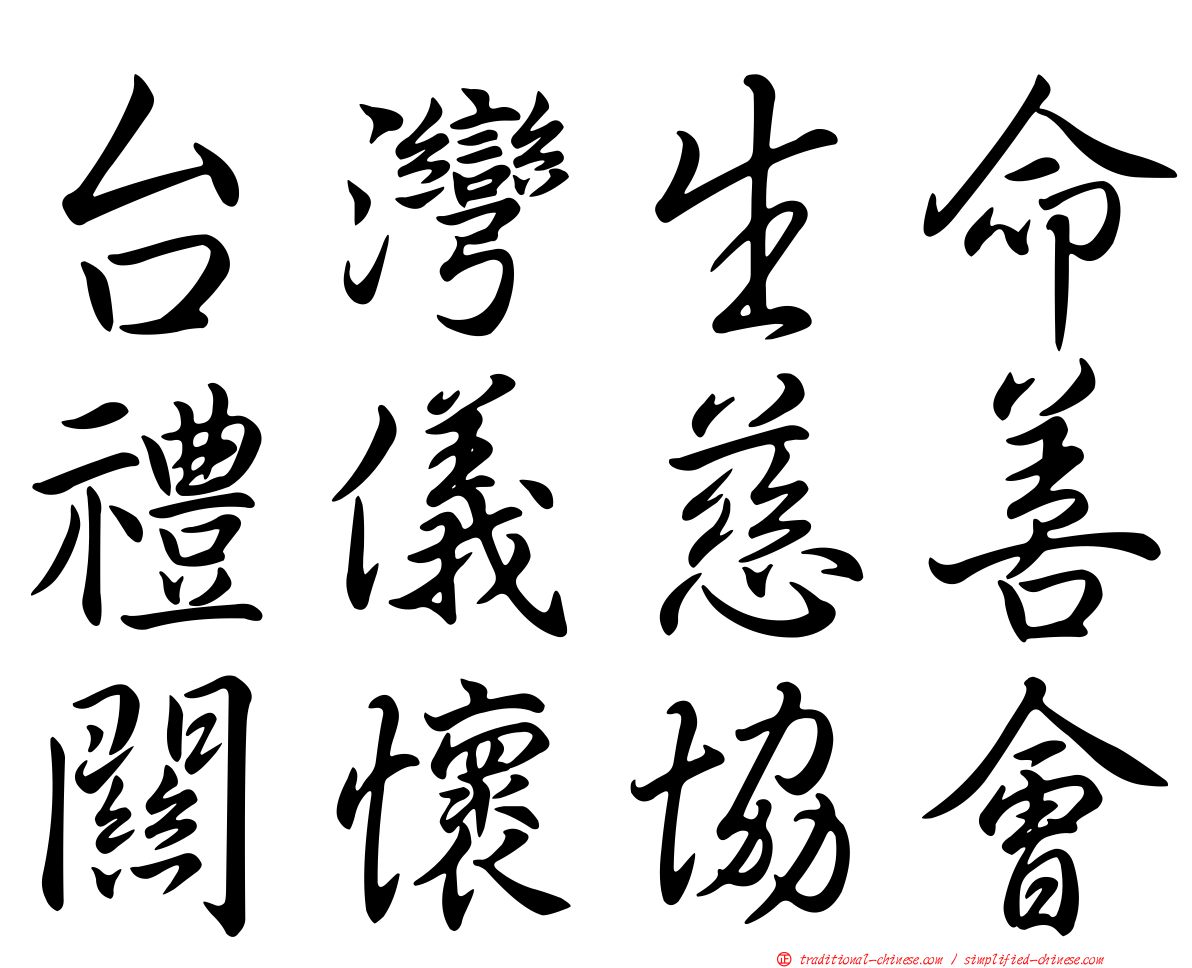 台灣生命
禮儀慈善
關懷協會
正 traditional-chinese.com / simplified-chinese.com